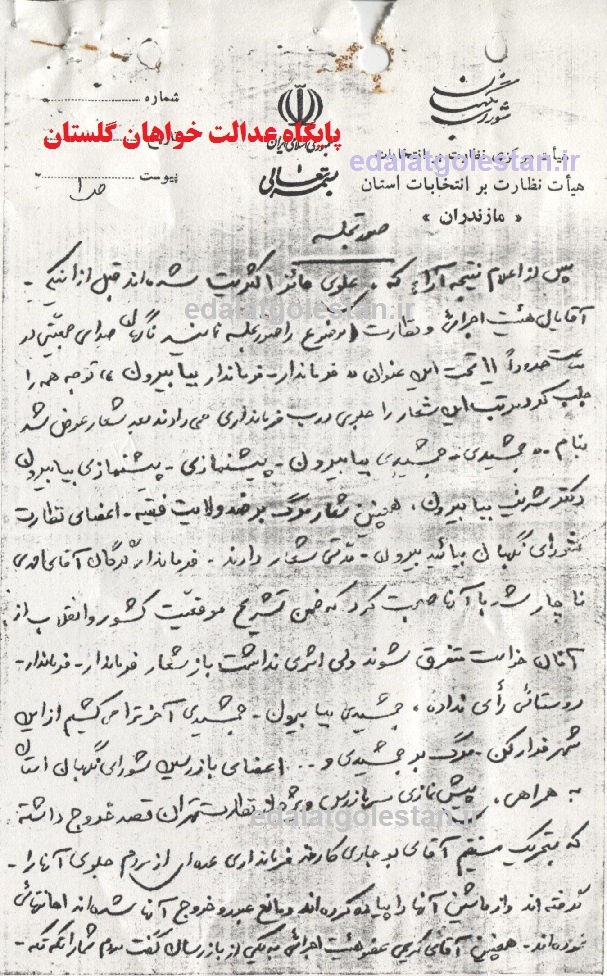 شورای نگهبان
جمهوری اسلامی ایران
بسمه تعالی
شماره
تاریخ
پیوست
ص ۱
پایگاه عدالت خواهان گلستان
edalatgolestan.ir
هیأت مرکزی نظارت بر انتخابات
هیأت نظارت بر انتخابات استان
« مازندران »
صورتجلسه
پس از اعلام نتیجه آراء که علوی حائز اکثریت شده‌اند قبل از اینکه -
آقایان هیئت اجرائی و نظارت موضوع را صورتجلسه نمایند ناگهان صدای جمعیتی در
ساعت حدوداً ۱۱ تحت این عنوان « فرماندار - فرماندار بیا بیرون » توجه همه را
جلب کرد مرتب این شعار را جلوی درب فرمانداری می‌دادند بعد شعار عوض شد
بنام « جمشیدی - جمشیدی بیا بیرون - پیشنمازی - پیشنمازی بیا بیرون
دکتر شریف بیا بیرون، همچنین شعار مرگ بر ضد ولایت فقیه - اعضای نظارت
شورای نگهبان بیائید بیرون - مدتی شعار دادند - فرماندار گرگان آقای
ناچار شد با آنها صحبت کرد که ضمن تشریح موقعیت کشور و انقلاب از
آنان خواست متفرق شوند ولی اثری نداشت باز شعار فرماندار - فرماندار -
روستائی رأی نداده، جمشیدی بیا بیرون - جمشیدی آخر ترا می‌کشیم از این
شهر فرار کن - مرگ بر جمشیدی و .. اعضای بازرسین شورای نگهبان استان
به همراهی پیش نمازی سربازرس ویژه نظارت تهران قصد خروج داشته
که بتحریک مستقیم آقای کارمند فرمانداری عده‌ای از مردم جلوی آنها را -
گرفته‌اند و از ماشین آنها را پیاده کرده‌اند و مانع عبور و خروج آنها شده‌اند اهانتهائی
نموده‌اند - همچنین آقای کریمی عضو هیئت اجرائی به یکی از بازرسان گفت مردم شما را تکه تکه -
edalatgolestan.ir
edalatgolestan.ir